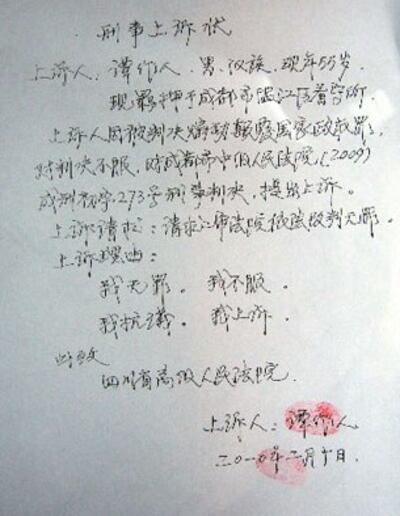 刑事上诉状
上诉人：谭作人，男，汉族，现年55岁。
现羁押于成都市温江区看守所。
上诉人因被判决煽动颠覆国家政权罪，
对判决不服，对成都市中级人民法院，(2009)
成刑初字273号刑事判决，提出上诉。
上诉请求：请求上诉法院依法改判无罪。
上诉理由：
我无罪。 我不服。
我抗议。 我上诉。
此致
四川省高级人民法院
上诉人：谭作人
二〇一〇年二月十日.